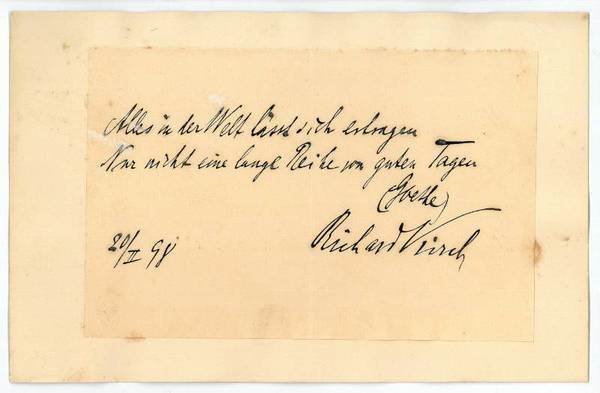 Alles in der Welt lässt sich ertragen
Nur nicht eine lange Reihe von guten Tagen
(Goethe)
20/II 98
Richard